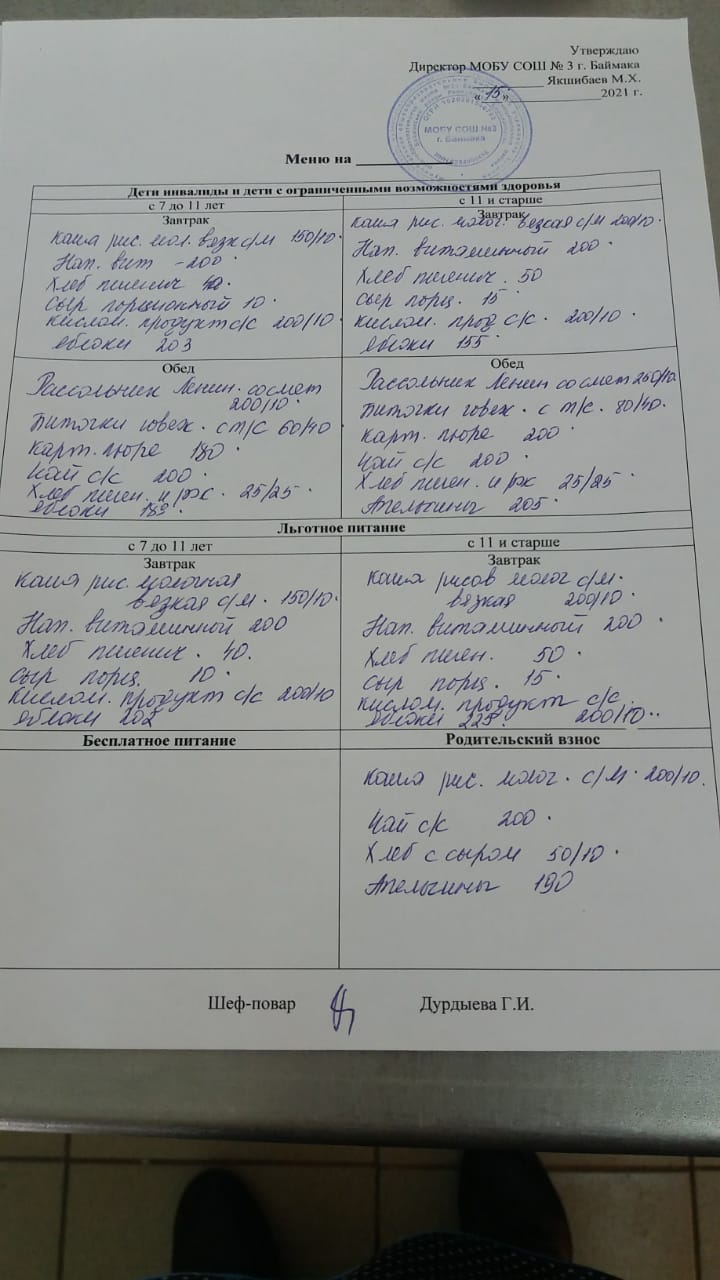 Утверждаю
Директор МОБУ СОШ № 3 г. Баймака
Якшибаев М.Х.
«15» 2021 г.
МОБУ СОШ №3
г. Баймака
Меню на
Дети инвалиды и дети с ограниченными возможностями здоровья
с 7 до 11 лет
Завтрак
Каша рис. мол. вязк с/м 150/10.
Нап. вит - 200.
Хлеб пшенич 40.
Сыр порционный 10.
Кислом. продукт с/с 200/10.
Яблоки 203
с 11 и старше
Завтрак
Каша рис. молоч. вязкая с/м 200/10.
Нап. витаминный 200.
Хлеб пшенич. 50
Сыр порц. 15
Кислом. прод с/с. 200/10.
Яблоки 155.
Обед
Рассольник Ленин. со смет
200/10.
Биточки говяж. с т/с 60/40.
Карт. пюре 180.
Чай с/с 200.
Хлеб пшен. и рж. 25/25.
Яблоки
Обед
Рассольник Ленин со смет 250/10.
Биточки говяж. с т/с. 80/40.
Карт. пюре 200
Чай с/с 200.
Хлеб пшен. и рж 25/25.
Апельсины 205.
Льготное питание
с 7 до 11 лет
Завтрак
Каша рис. молочная
вязкая с/м. 150/10.
Нап. витаминной 200
Хлеб пшенич. 40.
Сыр порц. 10.
Кислом. продукт с/с 200/10
Яблоки 202
с 11 и старше
Завтрак
Каша рисов молоч с/м.
вязкая 200/10.
Нап. витаминный 200.
Хлеб пшен. 50.
Сыр порц. 15.
Кислом. продукт с/с.
Яблоки 225. 200/10..
Бесплатное питание
Родительский взнос
Каша рис. молоч. с/м. 200/10.
Чай с/с 200.
Хлеб с сыром 50/10.
Апельсины 190
Шеф-повар Дурдыева Г.И.